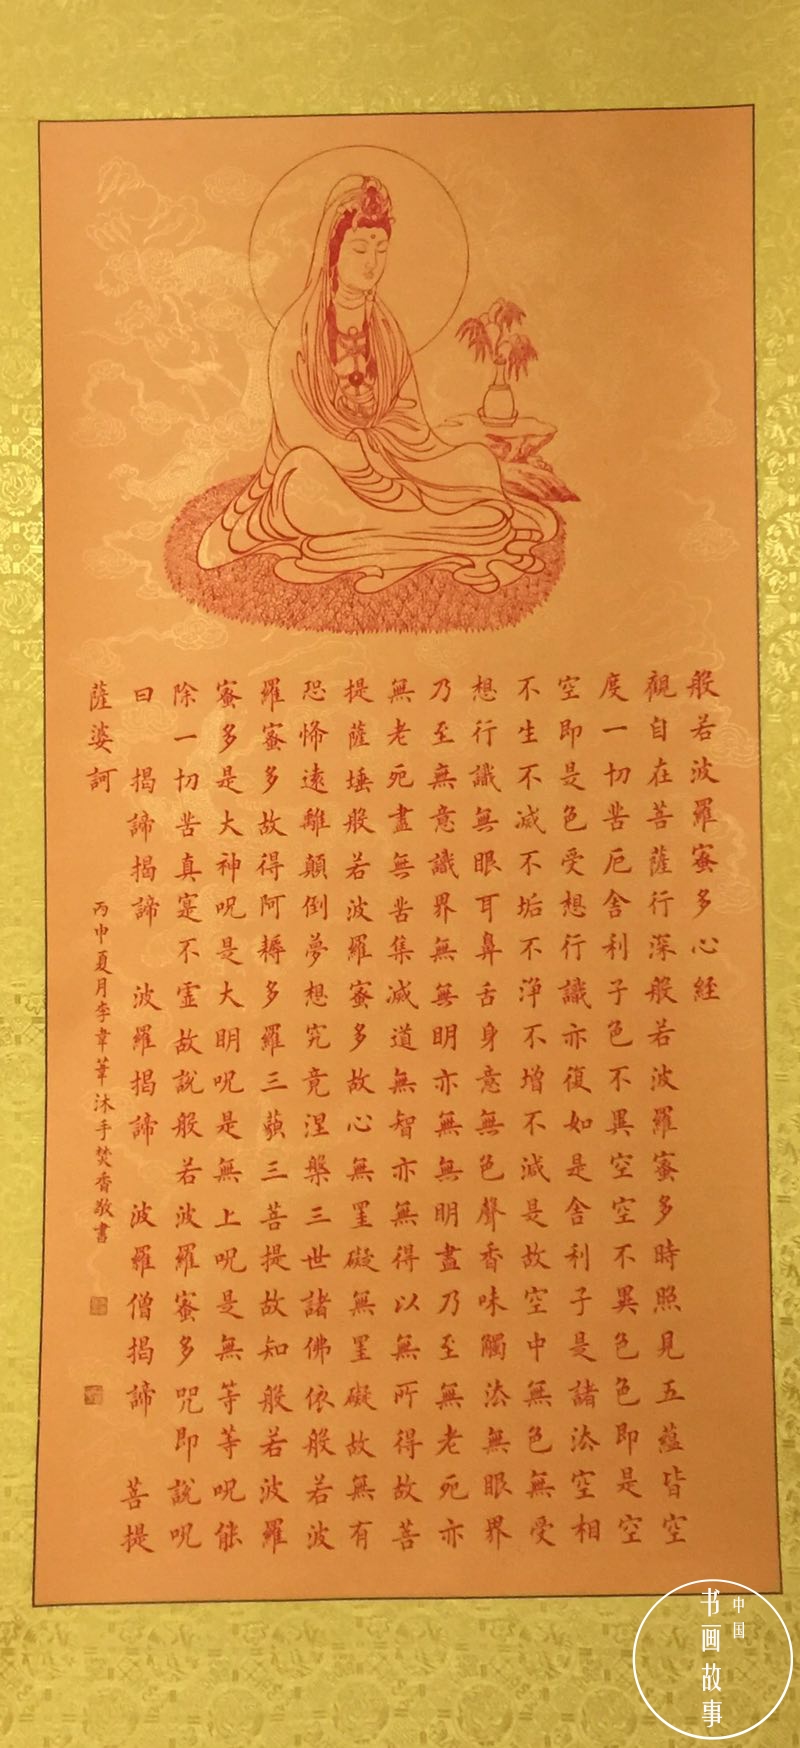 般若波羅蜜多心経
觀自在菩薩行深般若波羅蜜多時照見五蘊皆空
度一切苦厄舍利子色不異空空不異色色即是空
空即是色受想行識亦復如是舍利子是諸法空相
不生不滅不垢不淨不增不減是故空中無色無受
想行識無眼耳鼻舌身意無色聲香味觸法無眼界
乃至無意識界無無明亦無無明盡乃至無老死亦
無老死盡無苦集滅道無智亦無得以無所得故菩
提薩埵般若波羅蜜多故心無罣礙無罣礙故無有
恐怖遠離顛倒夢想究竟涅槃三世諸佛依般若波
羅蜜多故得阿耨多羅三藐三菩提故知般若波羅
蜜多是大神呪是大明呪是無上呪是無等等呪能
除一切苦真寔不虛故說般若波羅蜜多咒即說呪
曰 揭諦揭諦 波羅揭諦 波羅僧揭諦 菩提
薩婆訶
丙申夏月李韋沐手焚香敬書
中国
书画故事